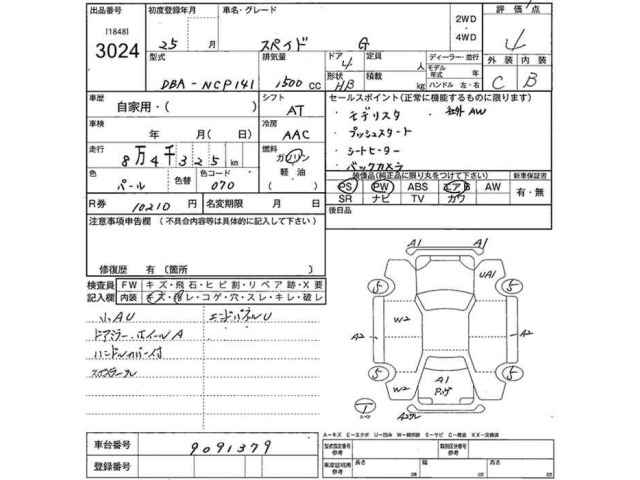 出品番号 初度登録年月 車名・グレード 2WD・4WD 評価点
[1848]
3024
25年月 スペイド G 4
型式 排気量 ドア 定員 ディーラー・並行 外装 内装
4 人 モデル年式 年
DBA-NCP141 1500cc 形状 HB 積載 kg ハンドル 左・右 C B
車歴 自家用・( ) シフト AT セールスポイント(正常に機能するものに限ります)
・モデリスタ ・社外AW
車検 年 月 ( 日) 冷房 AAC ・プッシュスタート
・シートヒーター
走行 8万4千325km 燃料 ガソリン 軽油 ( ) ・バックカメラ
装備品(純正品に限り丸をつけて下さい) 新車保証書
色 パール 色替 色コード 070 PS PW ABS エアB AW 有・無
SR ナビ TV カワ
R券 10210円 名変期限 月 日 後日品
注意事項申告欄 (不具合内容等は具体的に記入して下さい)
修復歴 有 (箇所 )
検査員記入欄 FW キズ・飛石・ヒビ割・リペア跡・X要
内装 キズ・汚レ・コゲ・穴・スレ・キレ・破レ
小AU エンドパネルU
ドアミラー、ホイールA
ハンドルカバー付
A1 A1
5 UA1 5
W2
A2 A2
5 W2 A1 5
A-キズ E-エクボ U-凹み W-補修跡 S-サビ C-腐食 XX-交換済
車台番号 9091379 型式指定番号 参考 類別区分番号 参考
登録番号 車庫証明用 参考 長さ cm 幅 cm 高さ cm